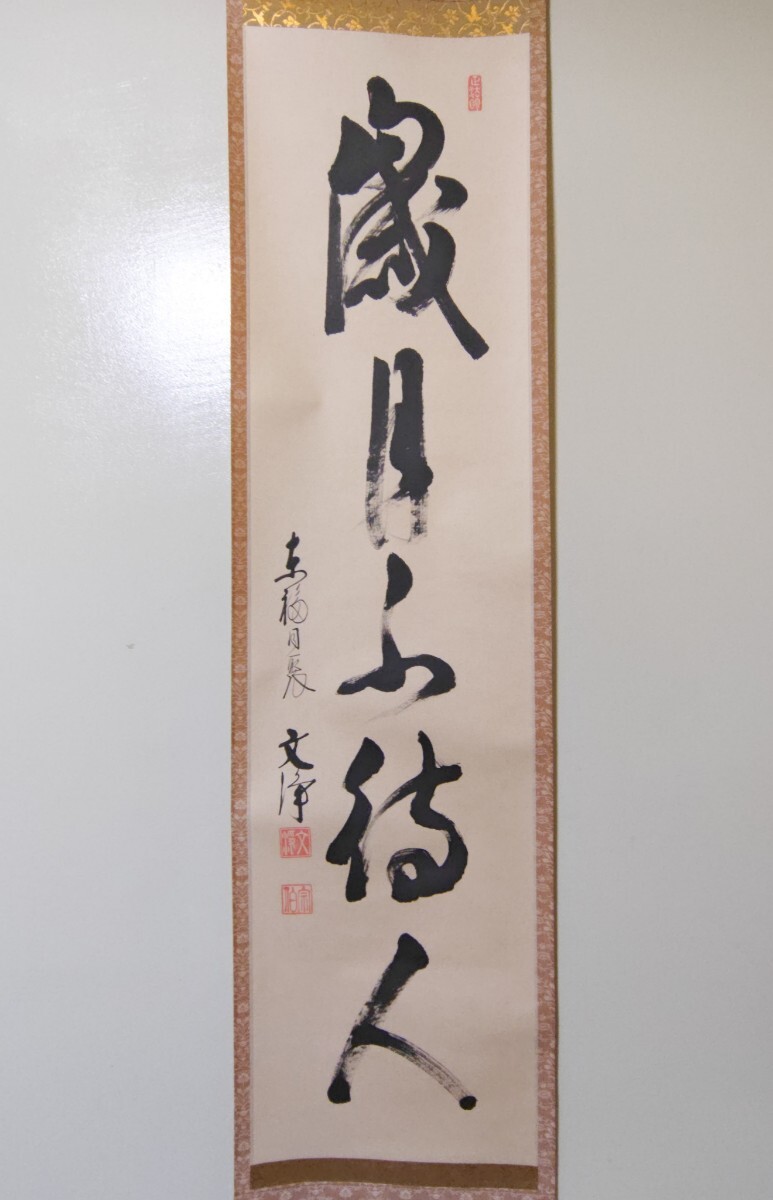 歳月不待人
東福
文浄